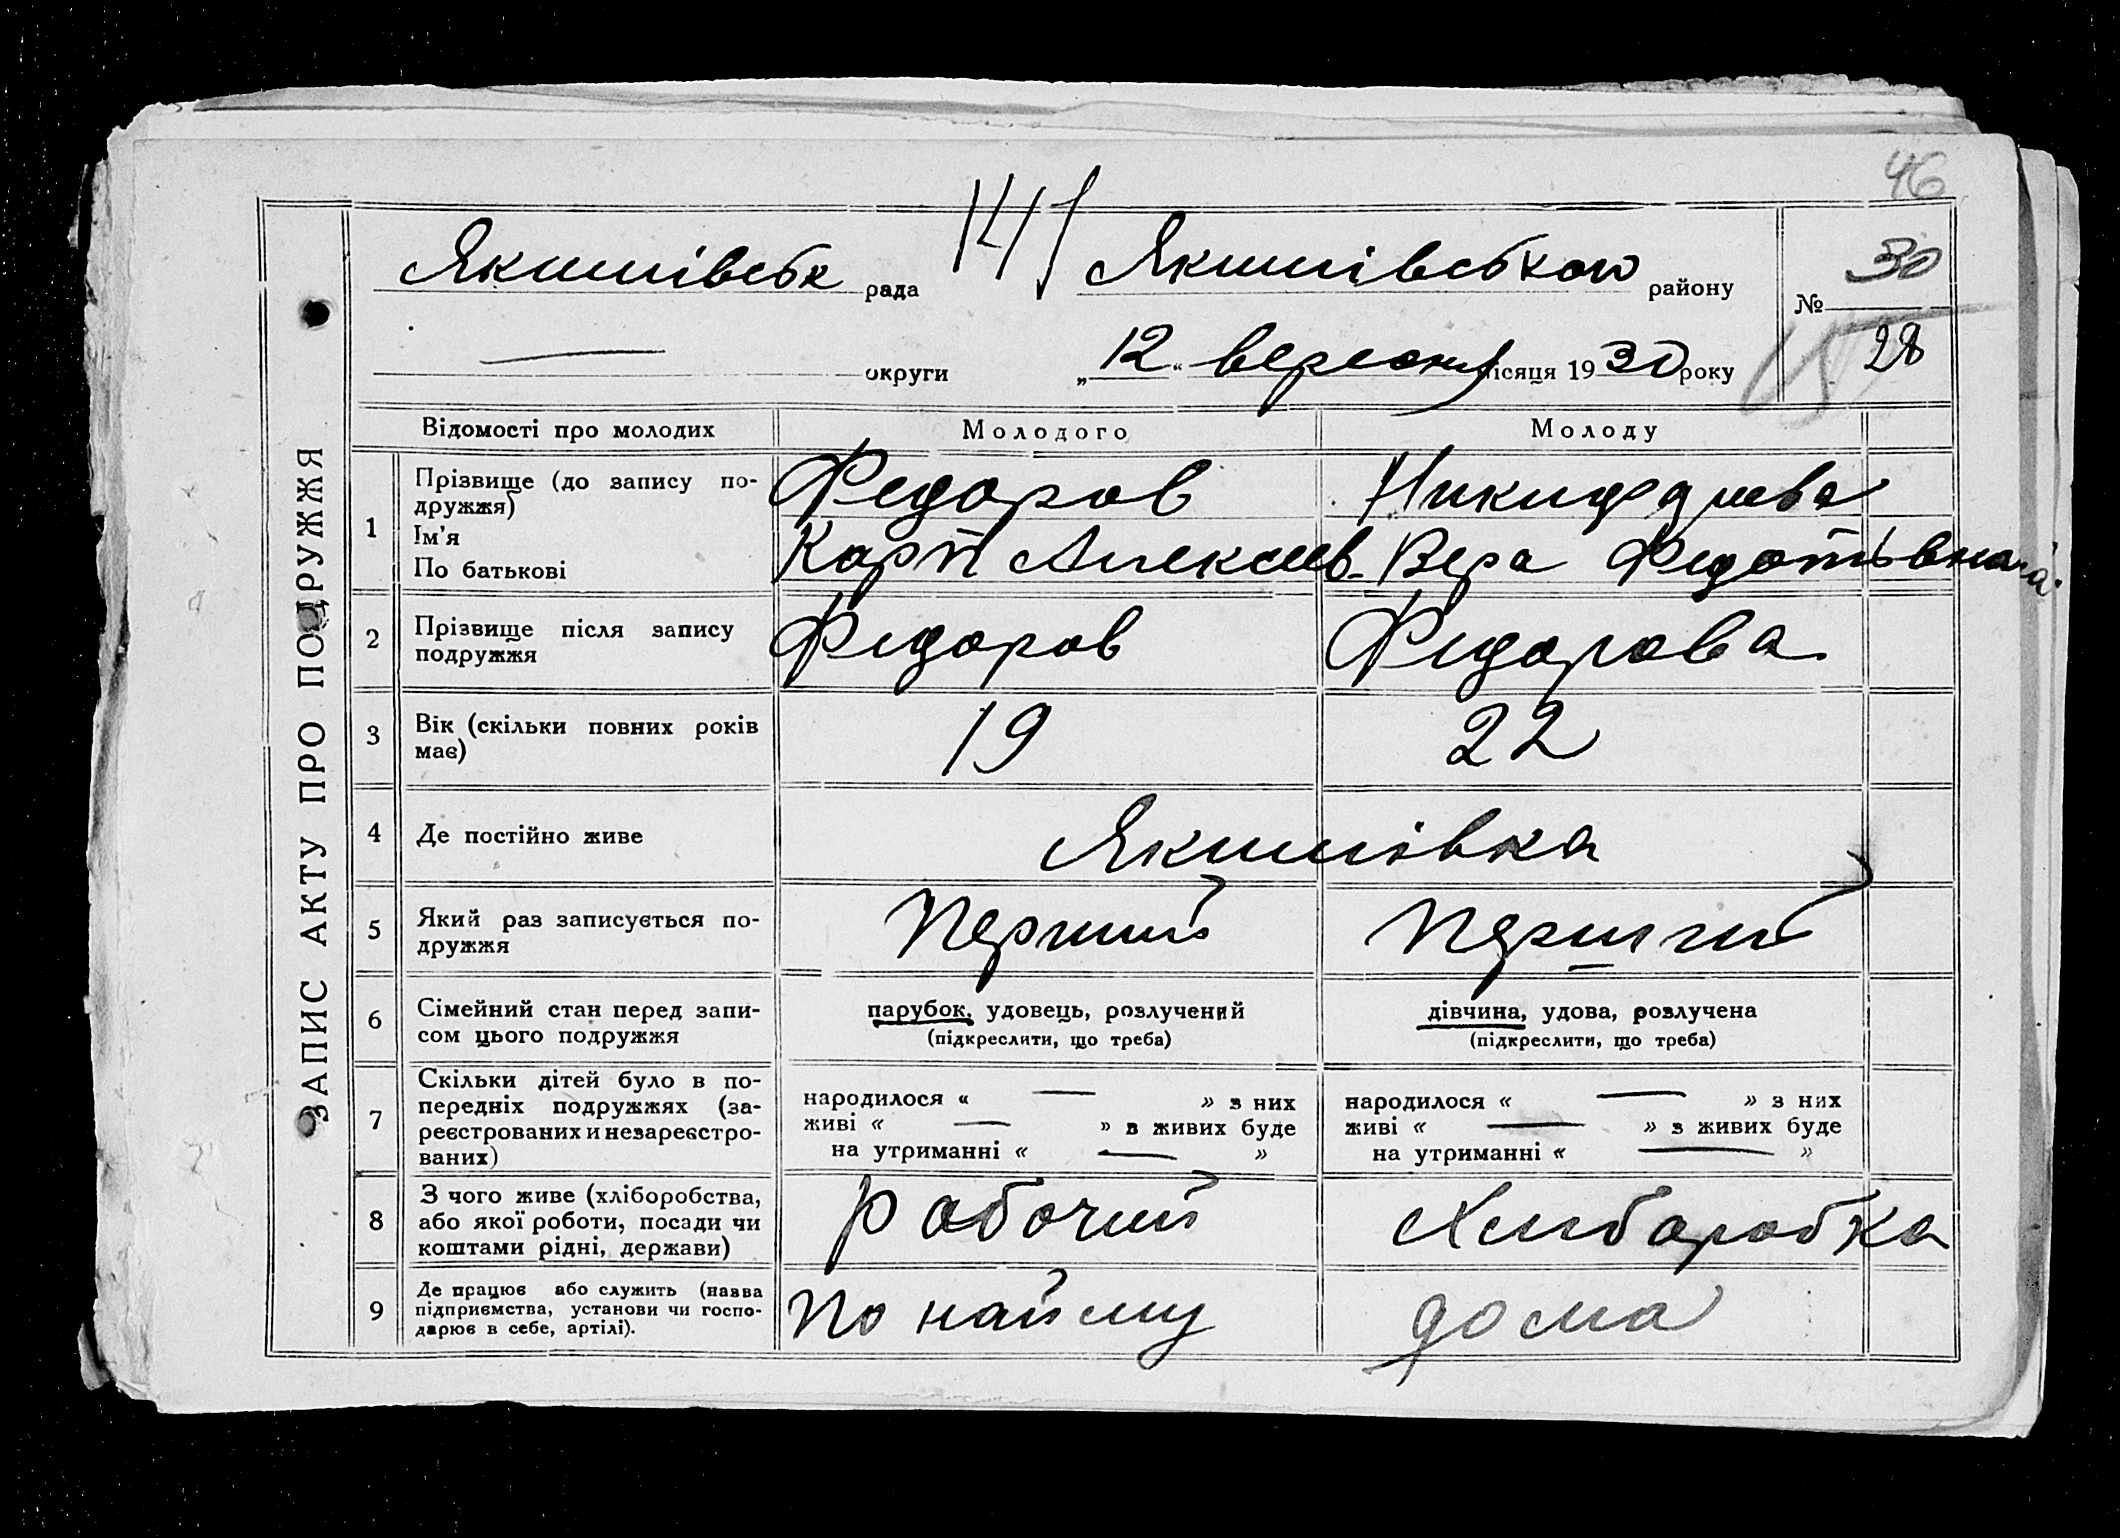 46
141
Якимівськ рада Якимівського району
№ 30
округи „12“ вересня місяця 1930 року
28
ЗАПИС АКТУ ПРО ПОДРУЖЖЯ
Відомості про молодих Молодого Молоду
1 Прізвище (до запису по-
дружжя)
Ім'я
По батькові
Федоров
Карп Алексеев.
Вера Федотівна
2 Прізвище після запису
подружжя
Федоров Федорова
3 Вік (скільки повних років
має)
19 22
4 Де постійно живе Якимівка
5 Який раз записується по-
дружжя
Перший Перший
6 Сімейний стан перед запи-
сом цього подружжя
парубок, удовець, розлучений
(підкреслити, що треба)
дівчина, удова, розлучена
(підкреслити, що треба)
7 Скільки дітей було в по-
передніх подружжях (за-
реєстрованих и незареєстро-
ваних)
народилося « — » з них
живі « — » з живих буде
на утриманні « — »
народилося « — » з них
живі « — » з живих буде
на утриманні « — »
8 З чого живе (хліборобства,
або якої роботи, посади чи
коштами рідні, держави)
Рабочий Хлиборобка
9 Де працює або служить (назва
підприємства, установи чи госпо-
дарює в себе, артілі).
По найму дома